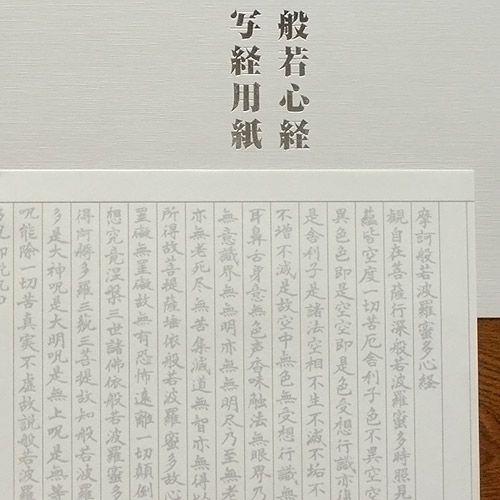 般若心経
写経用紙
摩訶般若波羅蜜多心経
観自在菩薩行深般若波羅蜜多時照
蘊皆空度一切苦厄舎利子色不異空
異色色即是空空即是色受想行識亦
是舎利子是諸法空相不生不滅不垢不
不増不減是故空中無色無受想行識無
耳鼻舌身意無色声香味触法無眼界乃
無意識界無無明亦無無明尽乃至無老
亦無老死尽無苦集滅道無智亦無得以
所得故菩提薩埵依般若波羅蜜多故心
罣礙無罣礙故無有恐怖遠離一切顛倒
想究竟涅槃三世諸佛依般若波羅蜜多
得阿耨多羅三藐三菩提故知般若波羅
多是大神呪是大明呪是無上呪是無等
呪能除一切苦真実不虚故説般若波羅